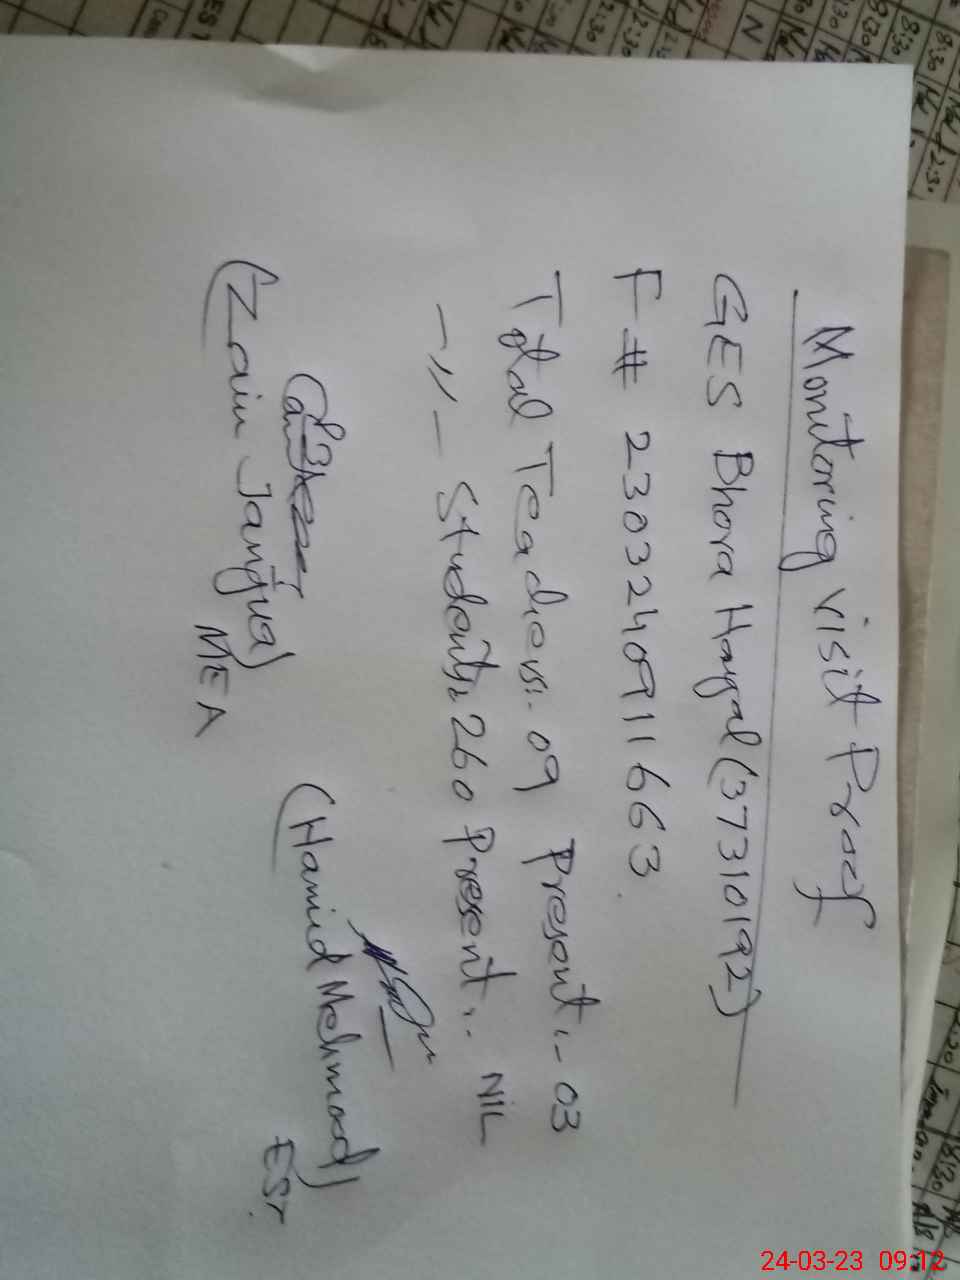 Monitoring visit Proof
GES Bhora Hayal (37310192)
F# 2303240911663.
Total Teachers:- 09 Present:- 03
-,,- Students: 260 Present:- NIL
(Zain Janjua) (Hamid Mehmood)
MEA EST.
24-03-23 09:12